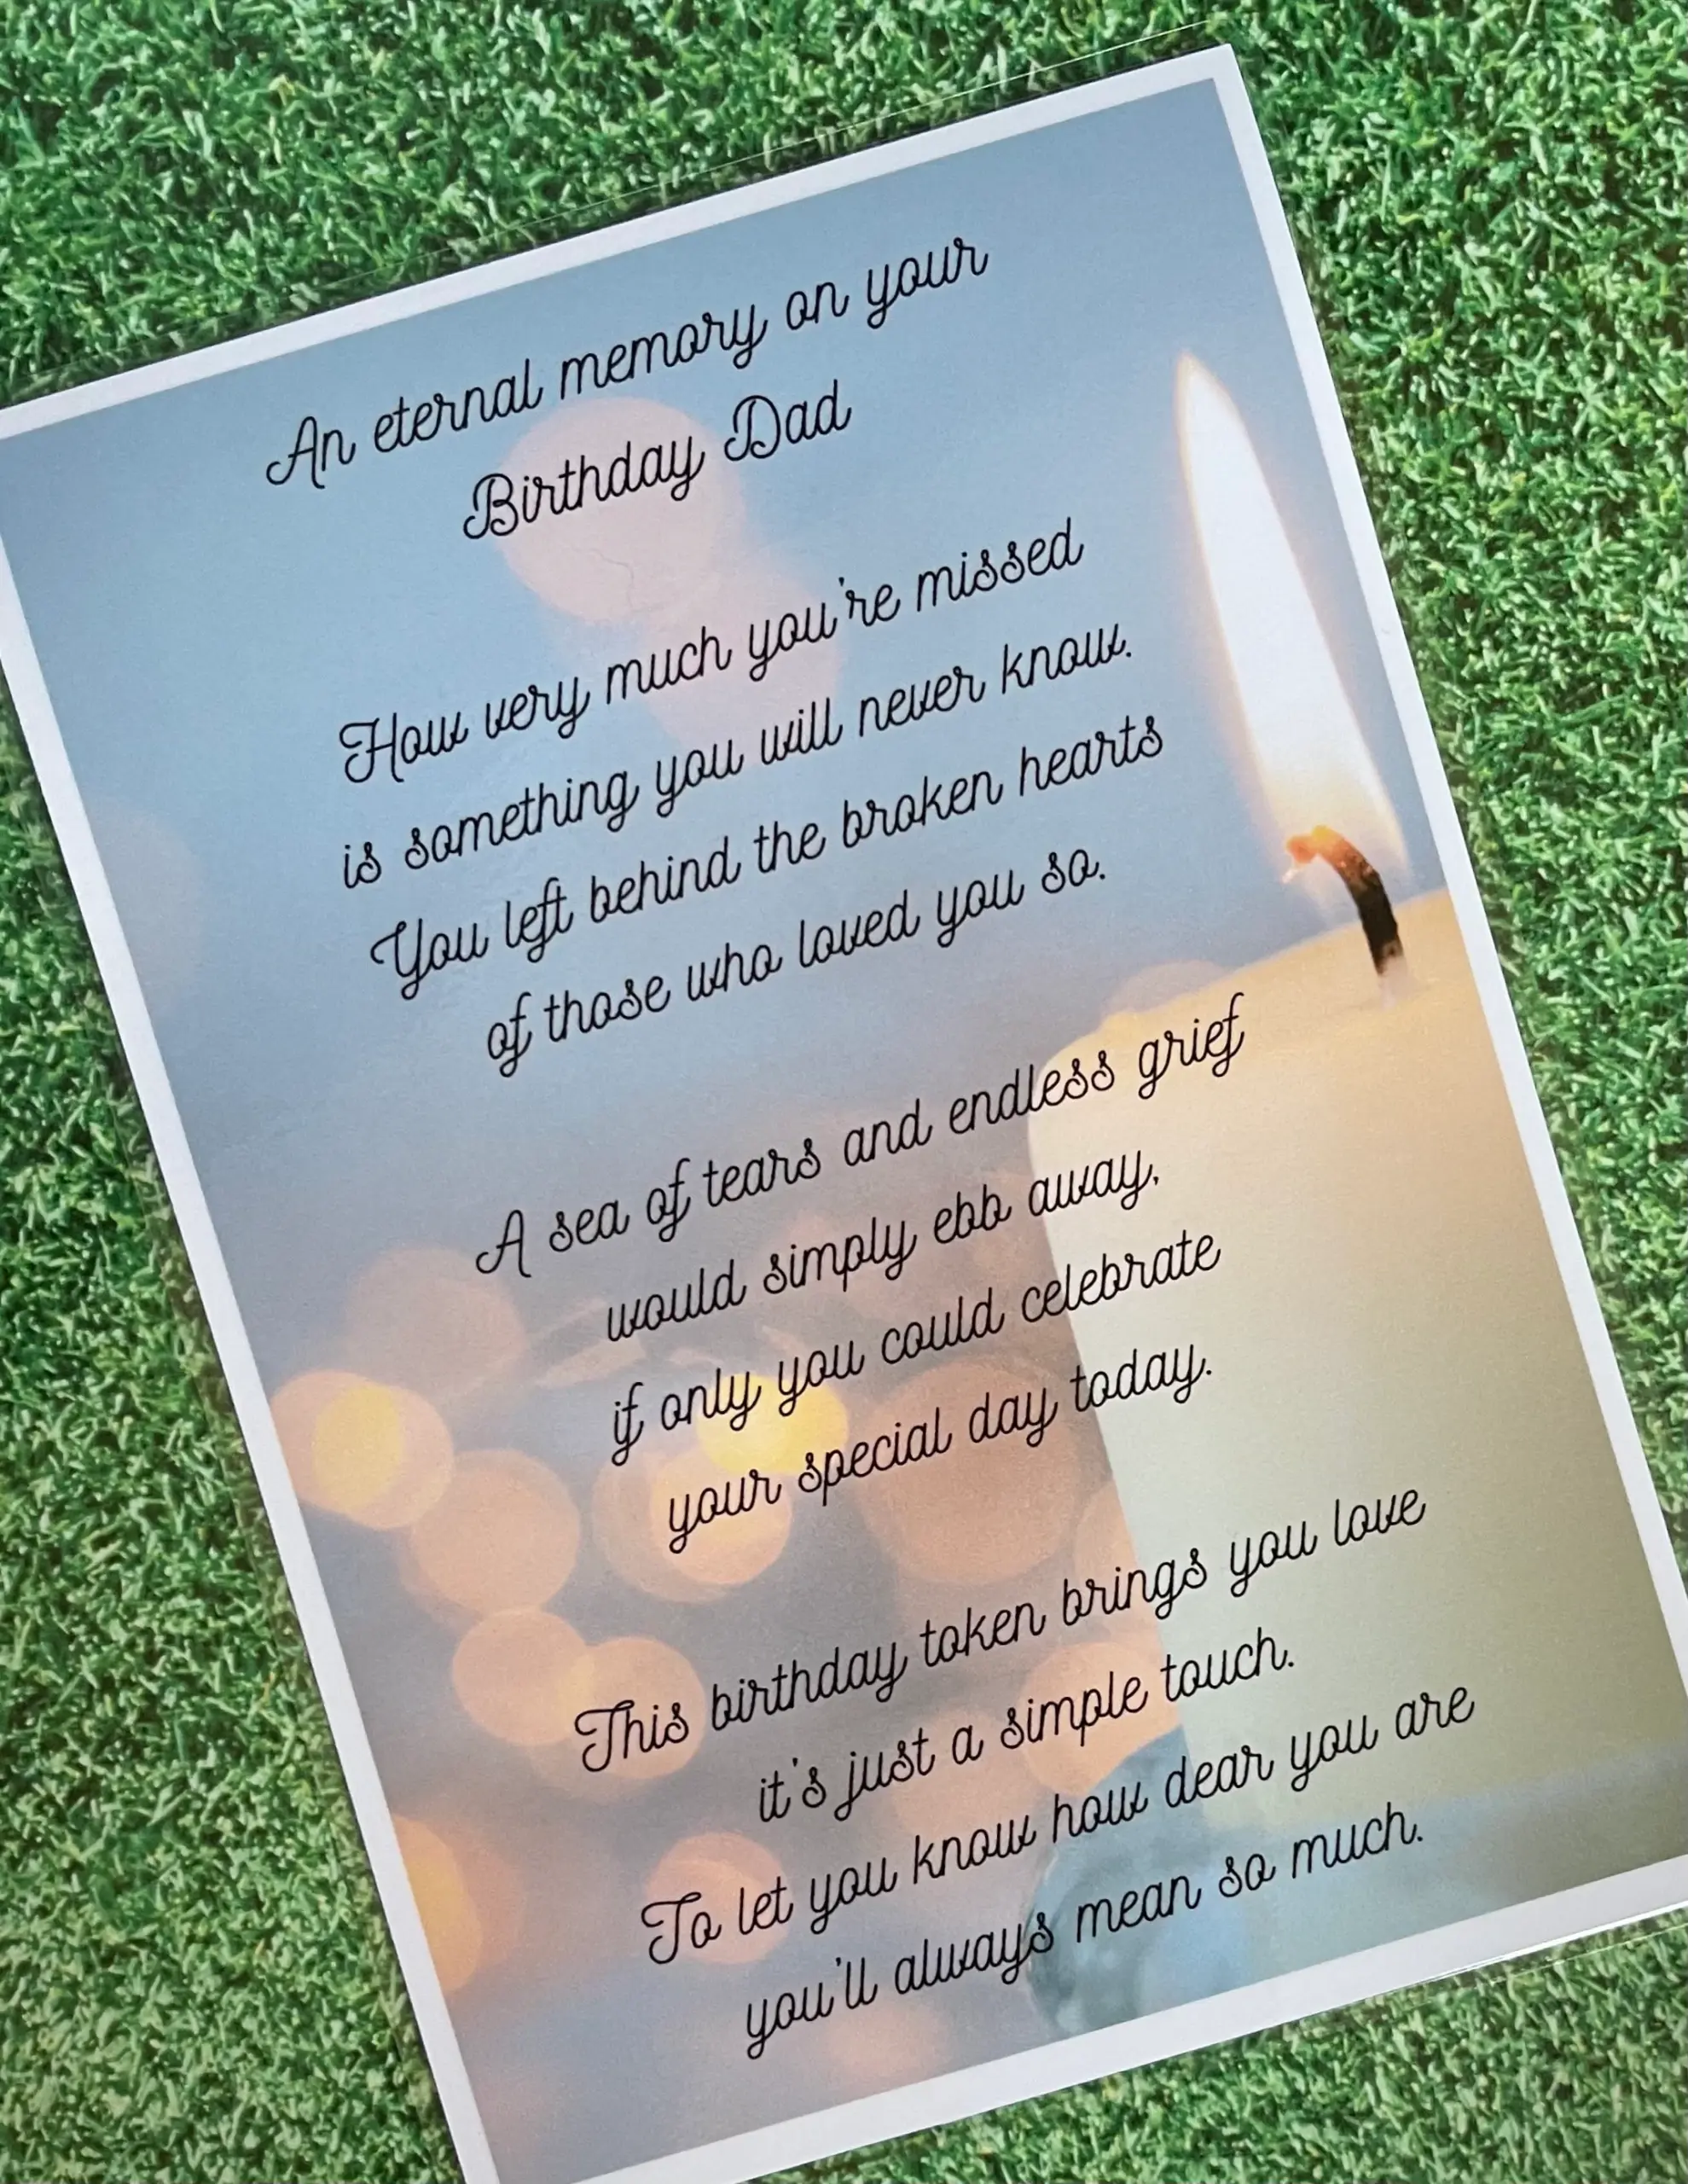 An eternal memory on your
Birthday Dad
How very much you're missed
is something you will never know.
You left behind the broken hearts
of those who loved you so.
A sea of tears and endless grief
would simply ebb away,
if only you could celebrate
your special day today.
This birthday token brings you love
it's just a simple touch.
To let you know how dear you are
you'll always mean so much.